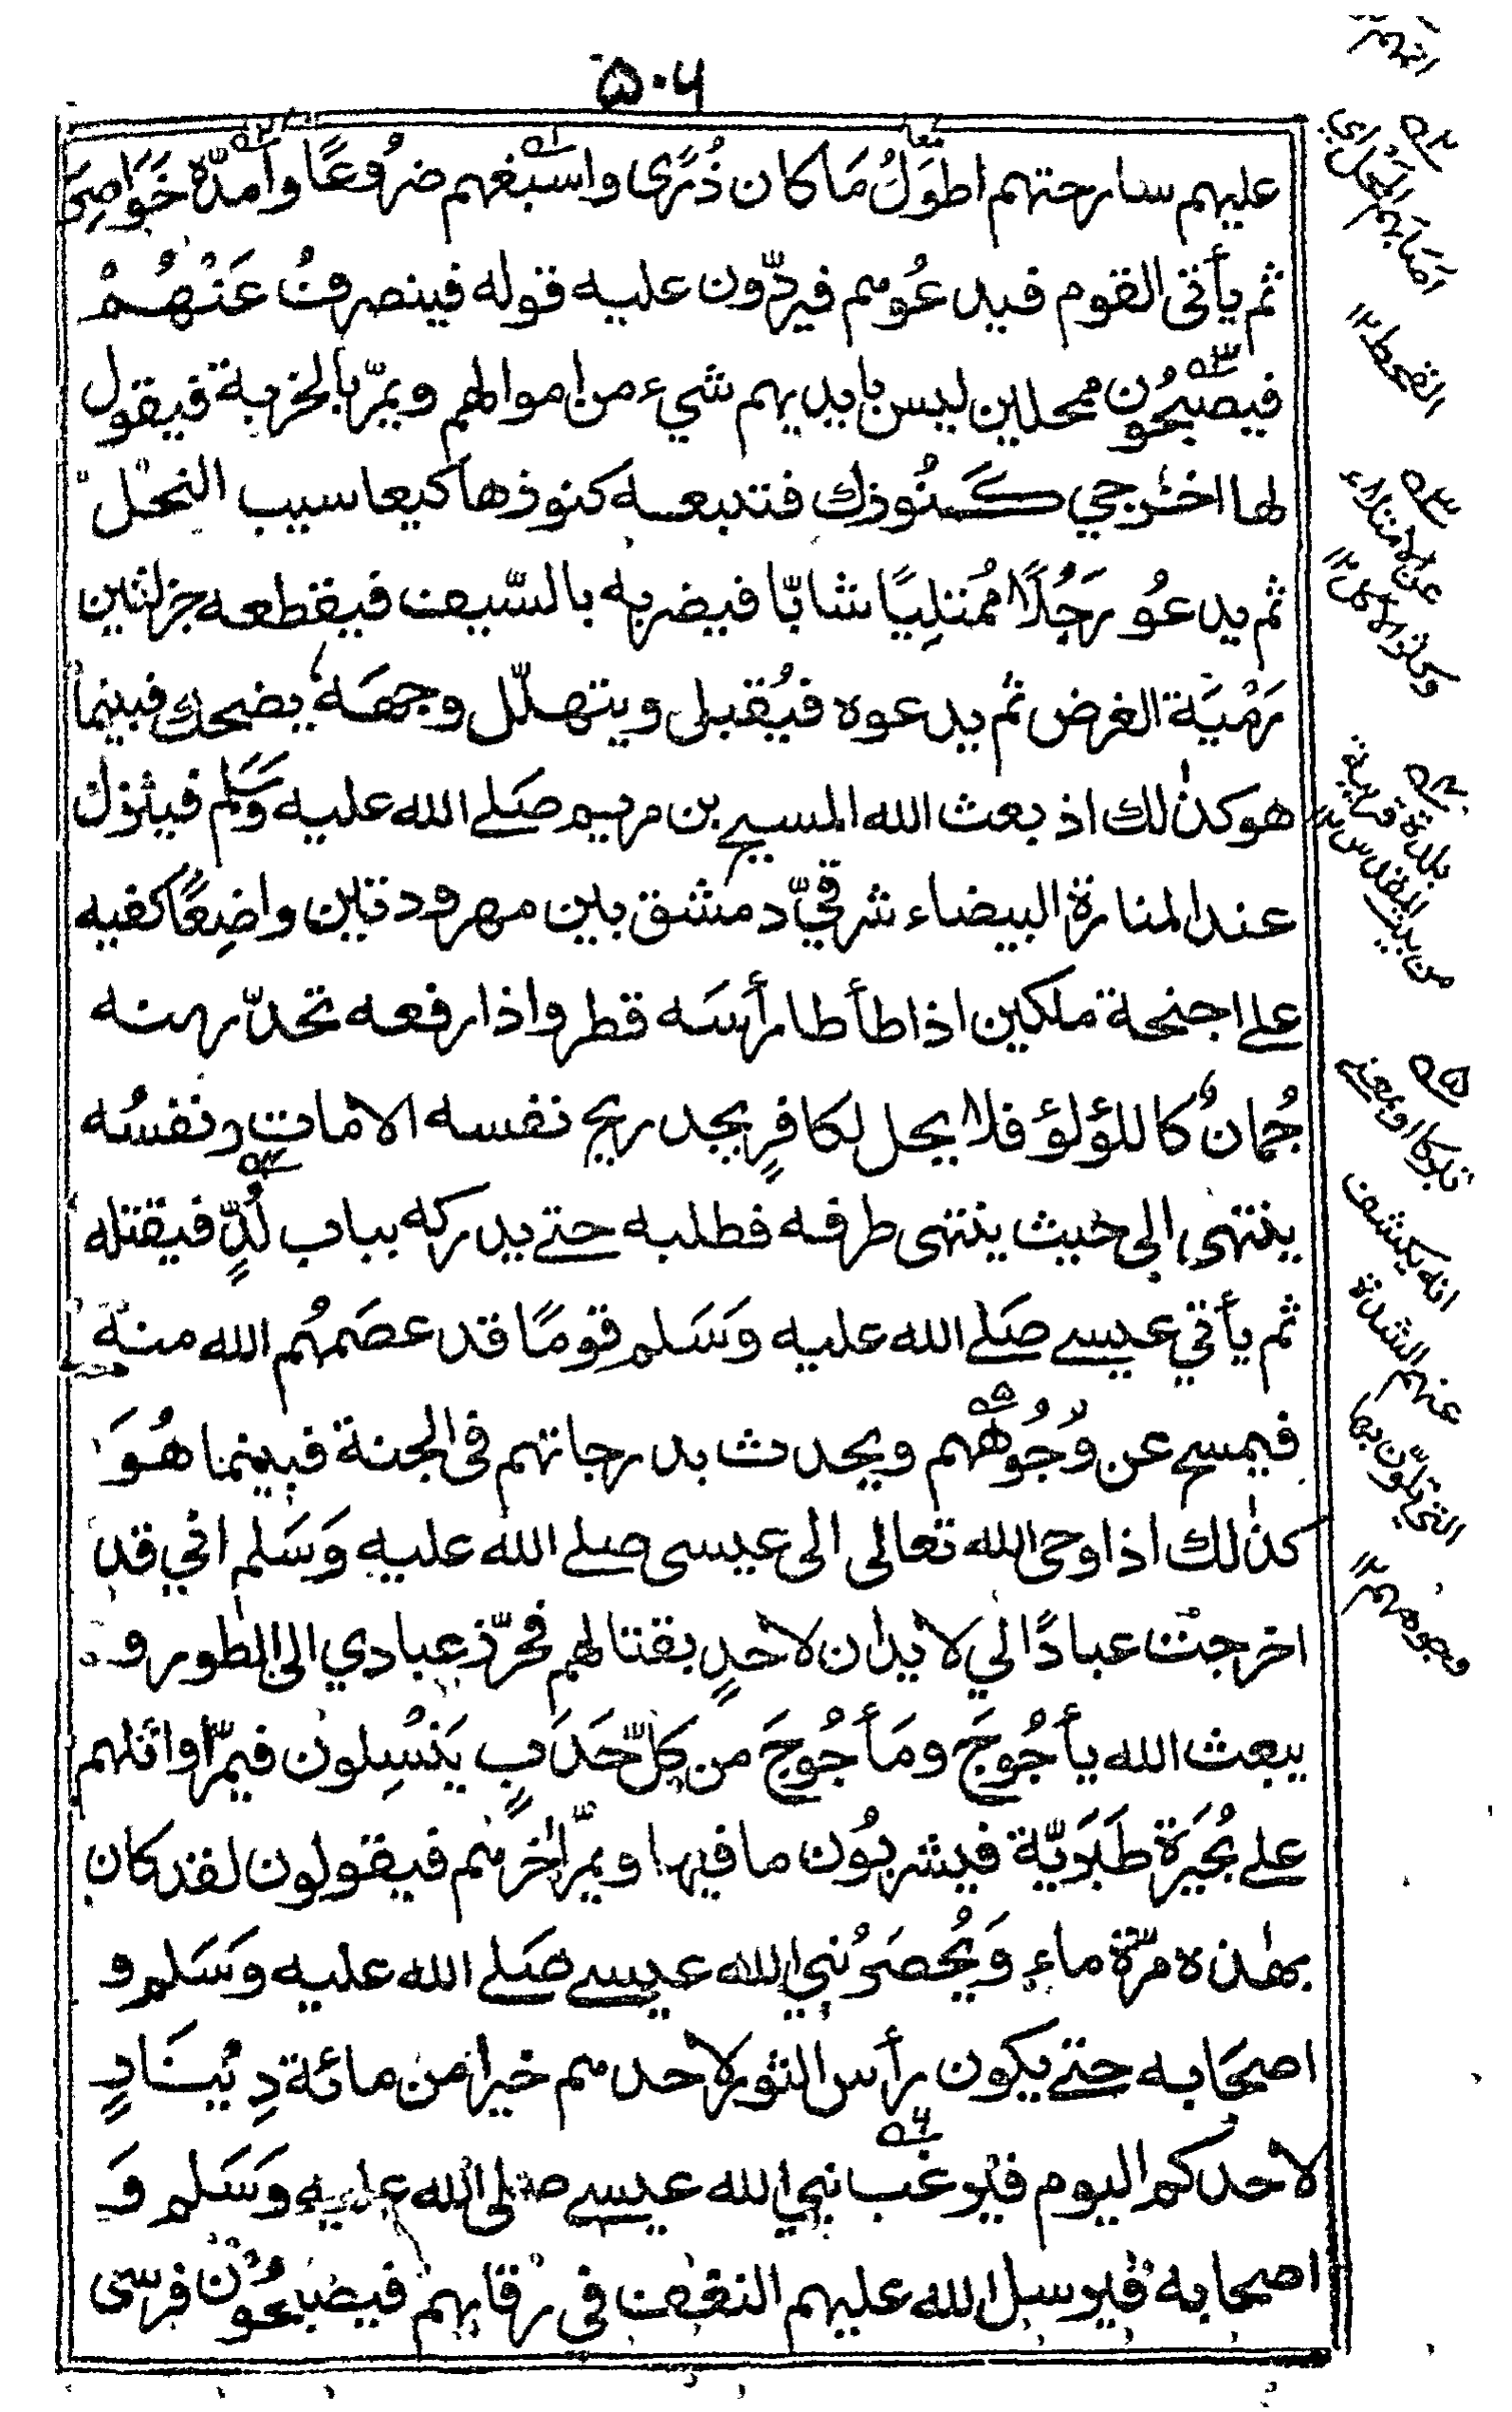 ۵۰۶
عليهم سارحتهم اطوَلُ مَا كان ذُرًى واسبغهم ضرُوعًا وامدّه خَوَاصِرَ
ثم يأتى القوم فيدعُوهم فيردّون عليه قوله فينصرفُ عَنْهُمْ
فيصبحُون ممحلين ليس بايديهم شيء من اموالهم ويمرّ بالخربة فيقول
لها اخرجي كنُوزك فتتبعه كنوزها كيعاسيب النحل
ثم يدعُو رَجُلًا مُمتلِيًا شابّا فيضربه بالسّيف فيقطعه جزلتين
رَمْيَة الغرض ثم يدعوه فيُقبل ويتهلّل وجهَه يضحك فبينما
هو كذٰلك اذ بعث الله المسيح بن مريم صَلى الله عليه وَسَلم فينزل
عند المنارة البيضاء شرقيّ دمشق بين مهرودتين واضِعًا كفيه
على اجنحة ملكين اذا طأطا رأسَه قطر واذا رفعه تحدّر منه
جُمانٌ كاللؤلؤ فلا يحل لكافرٍ يجد ريح نفسه الا مات ونفسُه
ينتهى الى حيث ينتهى طرفه فطلبه حتى يدركه بباب لُدٍّ فيقتله
ثم يأتي عيسى صَلى الله عليه وَسَلم قومًا قد عصَمهُم الله منه
فيمسح عن وُجُوههم ويحدث بدرجاتهم فى الجنة فبينما هُوَ
كذٰلك اذ اوحى الله تعالى الى عيسى صلى الله عليه وَسَلم اني قد
اخرجت عبادًا لي لا يدان لاحدٍ بقتالهم فحرّز عبادي الى الطور و
يبعث الله يأجُوجَ ومَأجُوجَ من كلّ حَدَبٍ يَنْسِلون فيمرّ اوائلهم
على بُحَيْرَة طَبَرَيّة فيشربُون ما فيها ويمرّ اٰخرهم فيقولون لقد كان
بهٰذه مرّة ماء وَيُحصَرُ نبي الله عيسى صَلى الله عليه وَسَلم و
اصحَابه حتى يكون رأس الثور لاحدهم خيرا من مائة دِينَارٍ
لاحدكم اليوم فيرغب نبي الله عيسى صلى الله عليه وَسَلم وَ
اصحابه فيرسل الله عليهم النغف فى رقابهم فيصبحُون فرسى
القحط ١٢
بلدة قريبة
من بيت المقدس ١٢
انه يكشف
عنهم الشدة